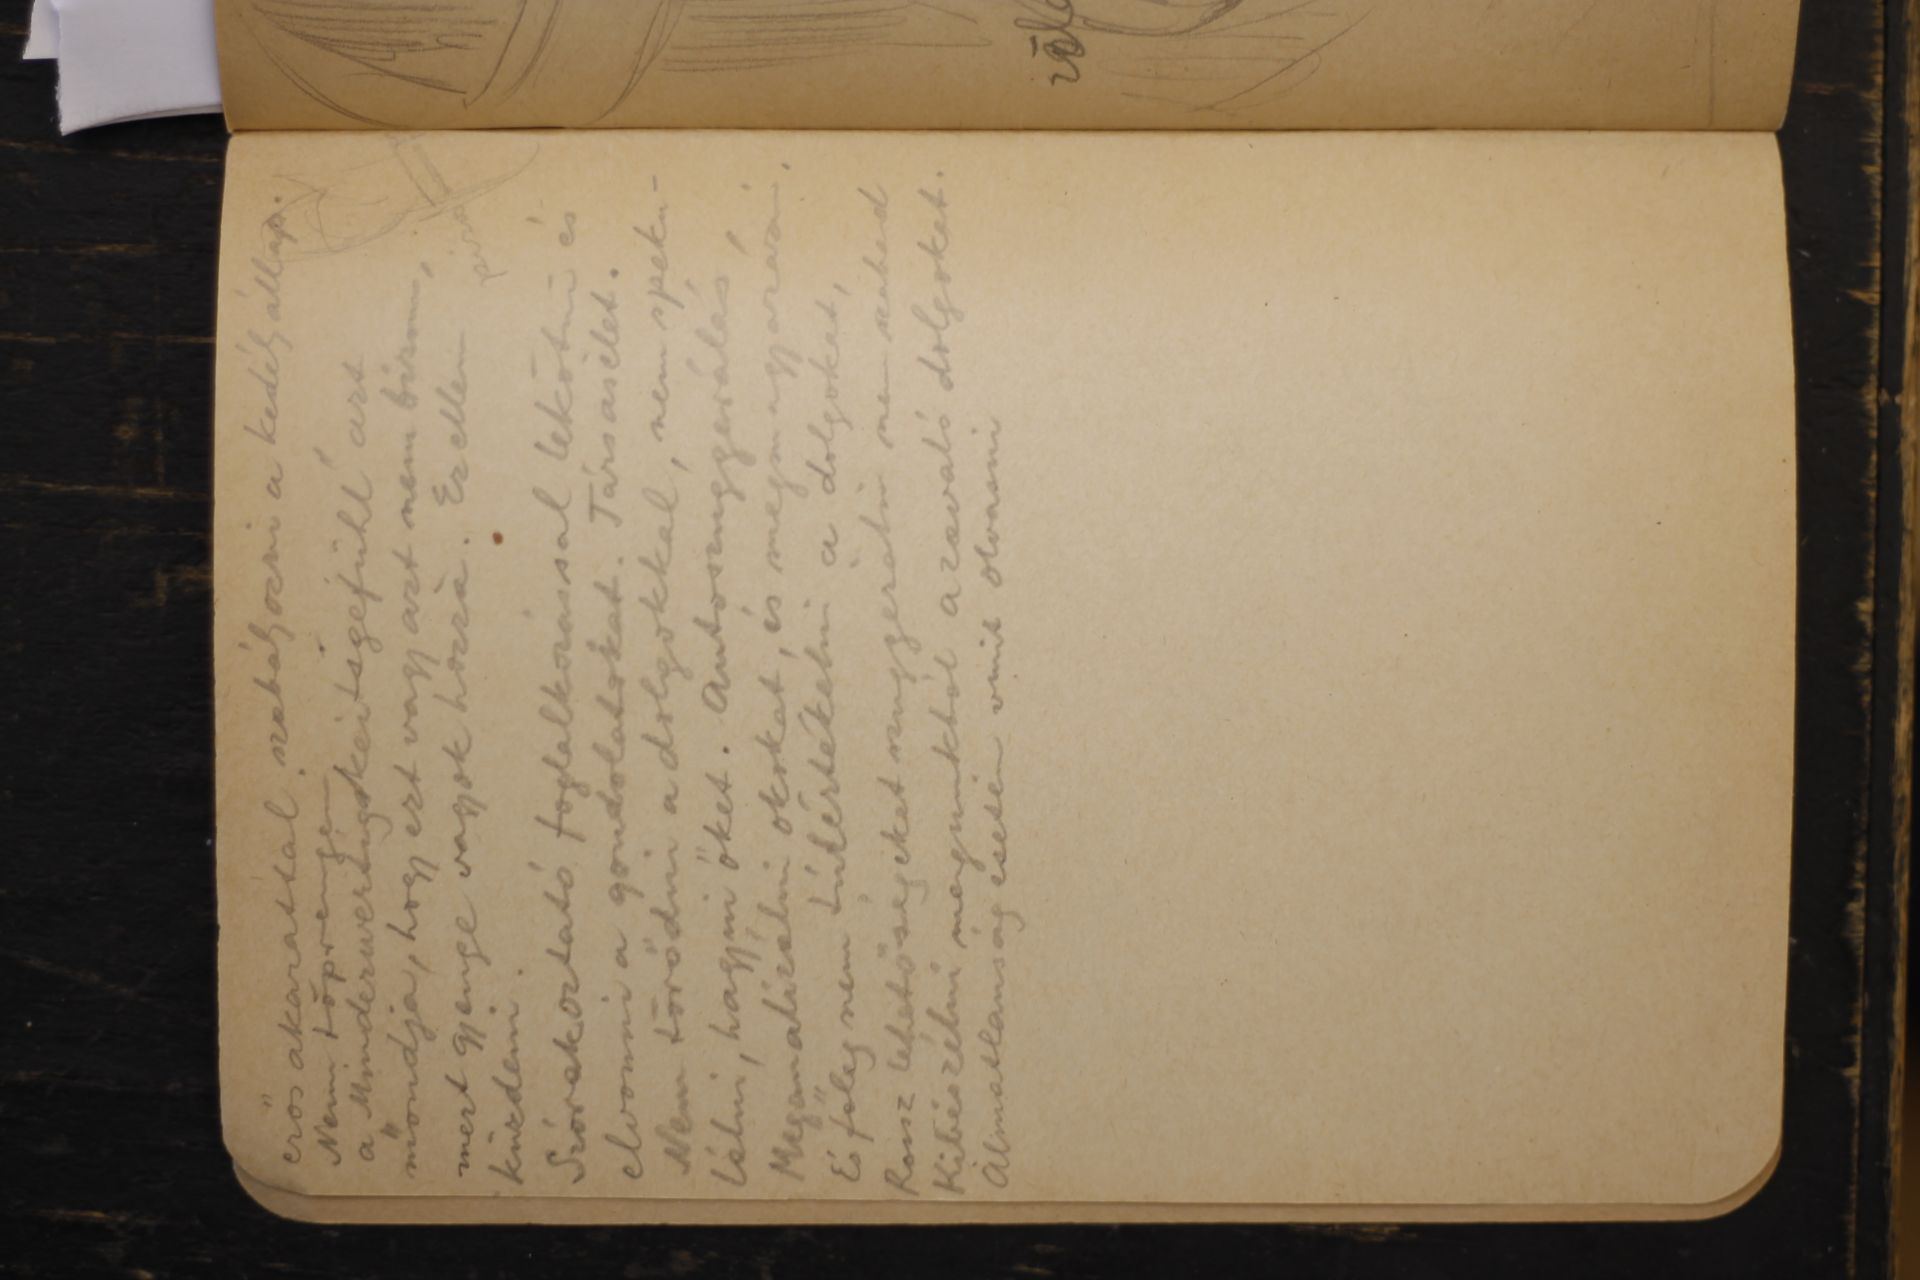 erős akarattal szabályozni a kedélyállap.
Nem töprengeni
a Minderwertigkeitsgefühl azt
mondja, hogy ezt vagy azt nem bírom,
mert gyenge vagyok hozzá. Ez ellen
küzdeni.
Szórakoztató foglalkozással lekötni és
elvonni a gondolatokat. Társasélet.
Nem törődni a dolgokkal, nem speku-
lálni, hagyni őket. Autoszuggerálás
Meganalizálni okokat, és megmagyarázni.
És főleg nem túlértékelni a dolgokat,
Rossz lehetőségeket szuggerálni nem szabad
Kibeszélni magunkból a zavaró dolgokat.
Álmatlanság esetén vmit olvasni